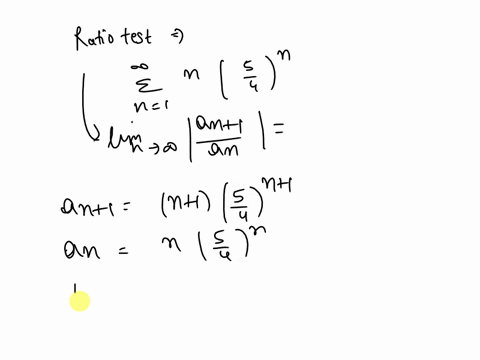 Ratio test ⇒
∞
Σ n (5/4)^n
n=1
lim n→∞ |an+1/an| =
an+1 = (n+1) (5/4)^n+1
an = n (5/4)^n